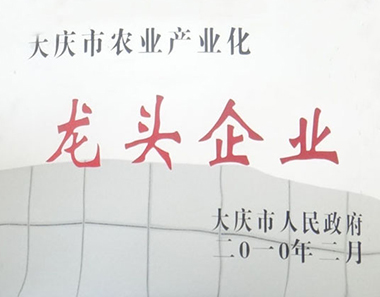 大庆市农业产业化
龙头企业
大庆市人民政府
二〇一〇年二月